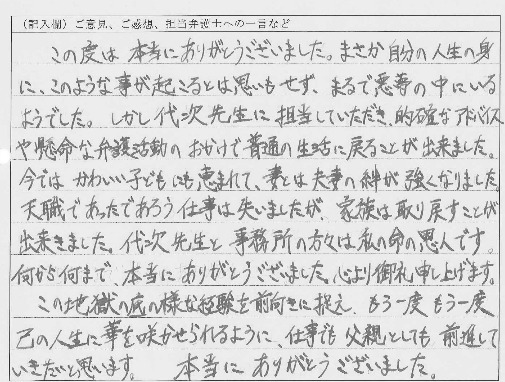 (記入欄)ご意見、ご感想、担当弁護士への一言など
この度は本当にありがとうございました。まさか自分の人生の身
に、このような事が起こるとは思いもせず、まるで悪夢の中にいる
ようでした。しかし代次先生に担当していただき、的確なアドバイス
や懸命な弁護活動のおかげで普通の生活に戻ることが出来ました。
今ではかわいい子どもにも恵まれて、妻とは夫妻の絆が強くなりました。
天職であったであろう仕事は失いましたが、家族は取り戻すことが
出来きました。代次先生と事務所の方々は私の命の恩人です。
何から何まで、本当にありがとうございました。心より御礼申し上げます。
この地獄の底の様な経験を前向きに捉え、もう一度もう一度
己の人生に華を咲かせられるように、仕事でも父親としても前進して
いきたいと思います。 本当にありがとうございました。